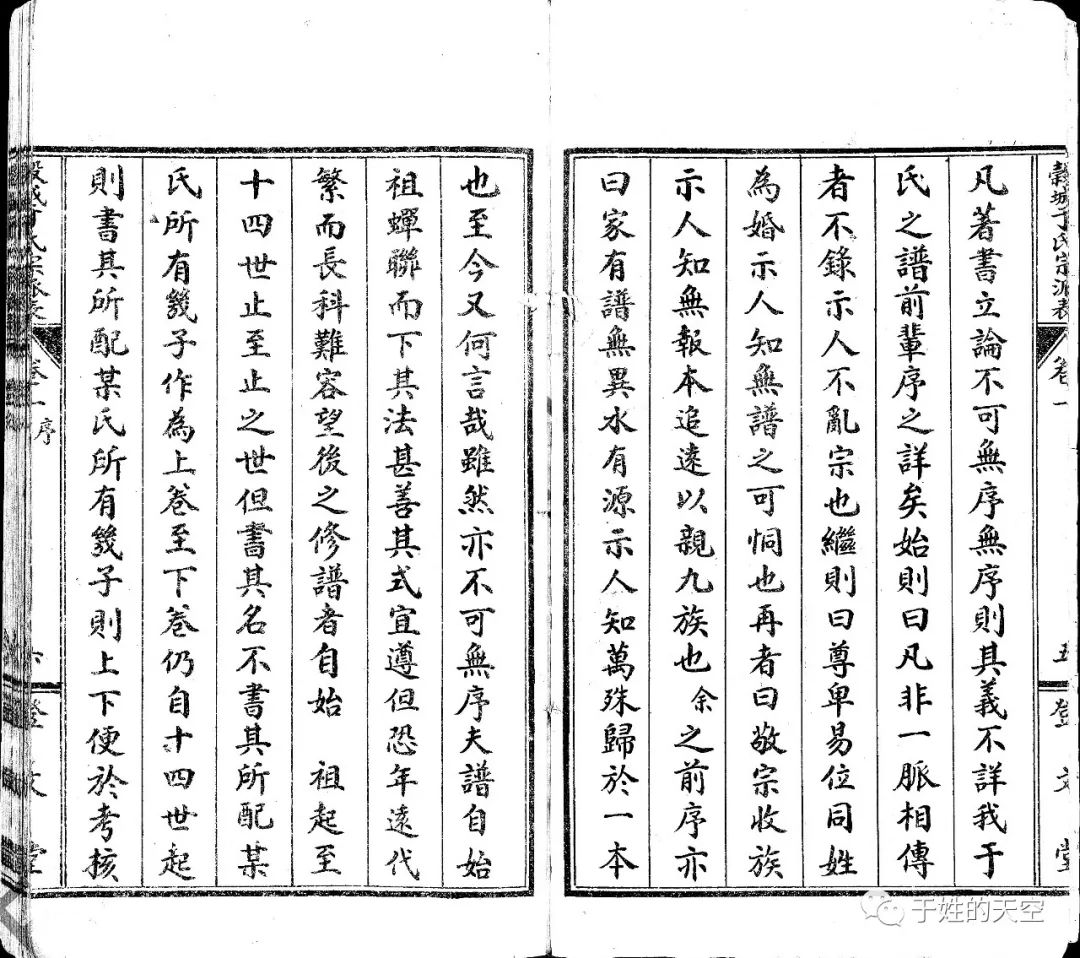 穀城于氏宗派表 卷一 五 登文堂
凡著書立論不可無序無序則其義不詳我于
氏之譜前輩序之詳矣始則曰凡非一脈相傳
者不錄示人不亂宗也繼則曰尊卑易位同姓
為婚示人知無譜之可恫也再者曰敬宗收族
示人知無報本追遠以親九族也余之前序亦
曰家有譜無異水有源示人知萬殊歸於一本
也至今又何言哉雖然亦不可無序夫譜自始
祖蟬聯而下其法甚善其式宜遵但恐年遠代
繁而長科難容望後之修譜者自始 祖起至
十四世止至止之世但書其名不書其所配某
氏所有幾子作為上卷至下卷仍自十四世起
則書其所配某氏所有幾子則上下便於考核
穀城于氏宗派表 卷一 序 六 登文堂
于姓的天空